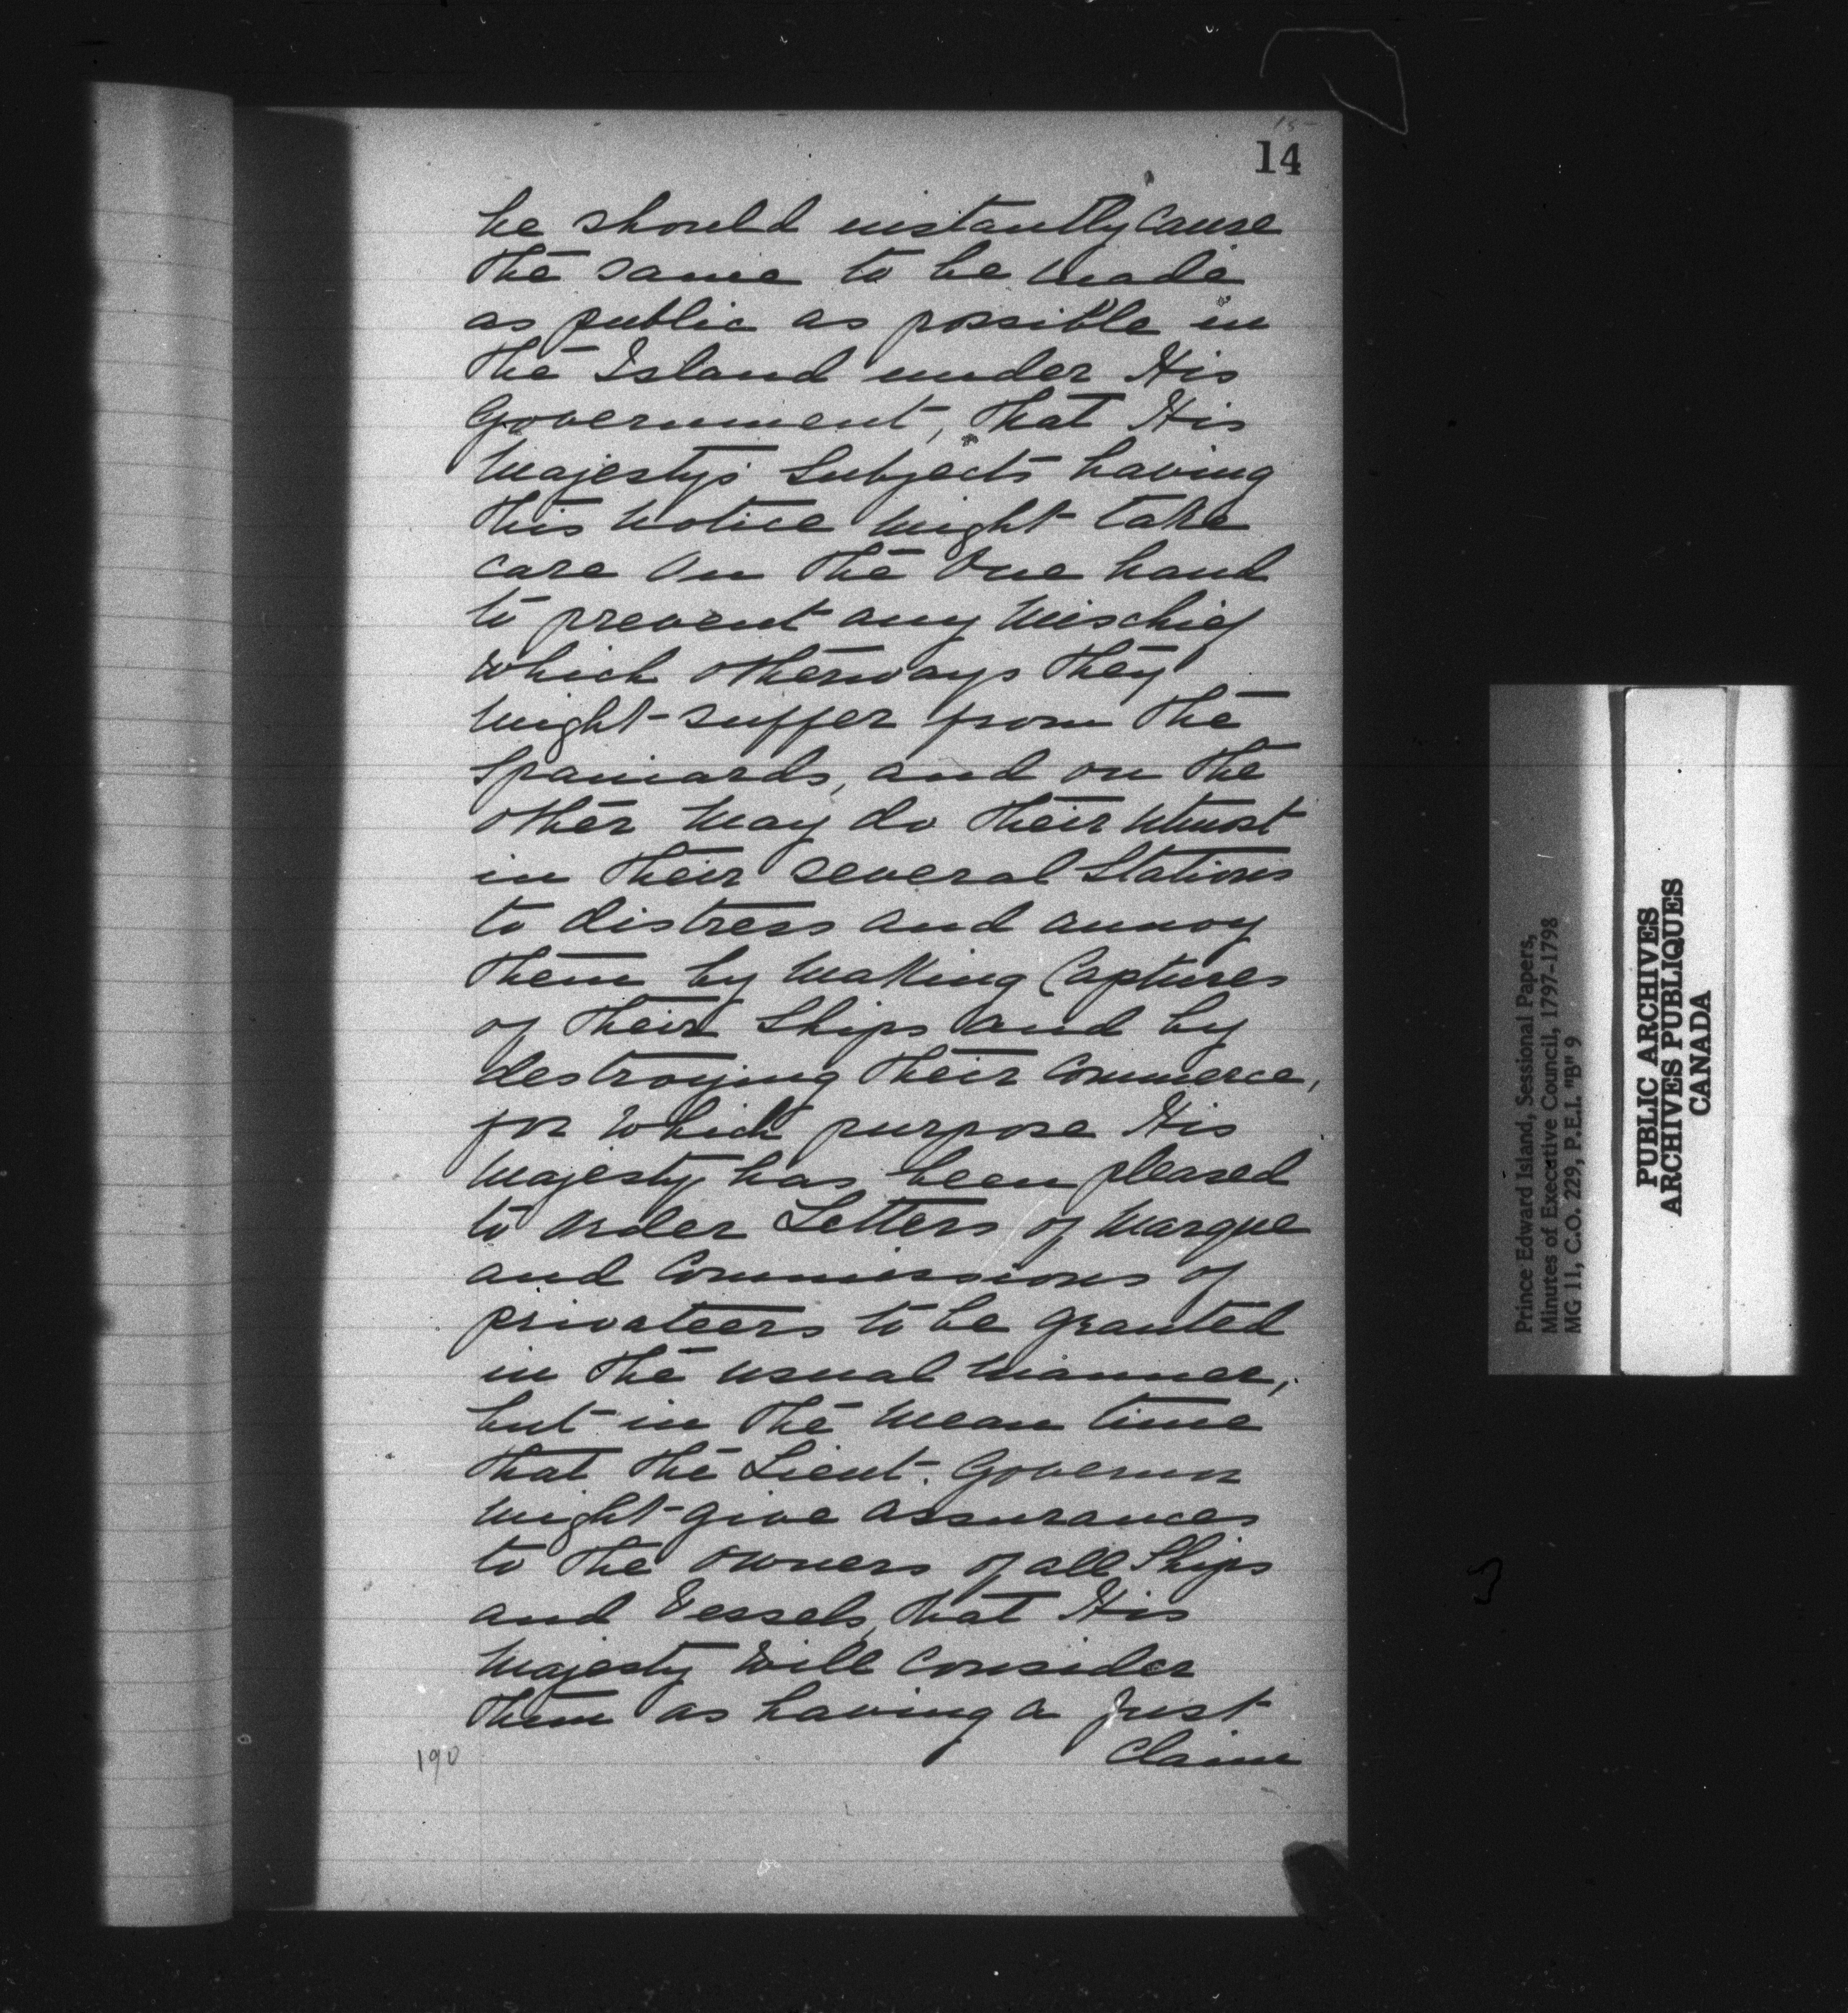 15
14
he should instantly Cause
the same to be made
as public as possible in
the Island under His
Government, that His
Majesty's Subjects having
this Notice might take
care On the One hand
to prevent any Mischief
which otherways they
might suffer from the
Spaniards, and on the
other may do their utmost
in their several Stations
to distress and annoy
them by making Captures
of their Ships and by
destroying their Commerce,
for which purpose His
Majesty has been pleased
to Order Letters of Marque
and Commissions of
privateers to be granted
in the usual manner,
but in the mean time
that the Lieut. Governor
might give assurances
to the owners of all Ships
and Vessels, that His
Majesty Will Consider
them as having a Just
Claim
190
Prince Edward Island, Sessional Papers,
Minutes of Executive Council, 1797-1798
MG 11, C.O. 229, P.E.I. "B" 9
PUBLIC ARCHIVES
ARCHIVES PUBLIQUES
CANADA